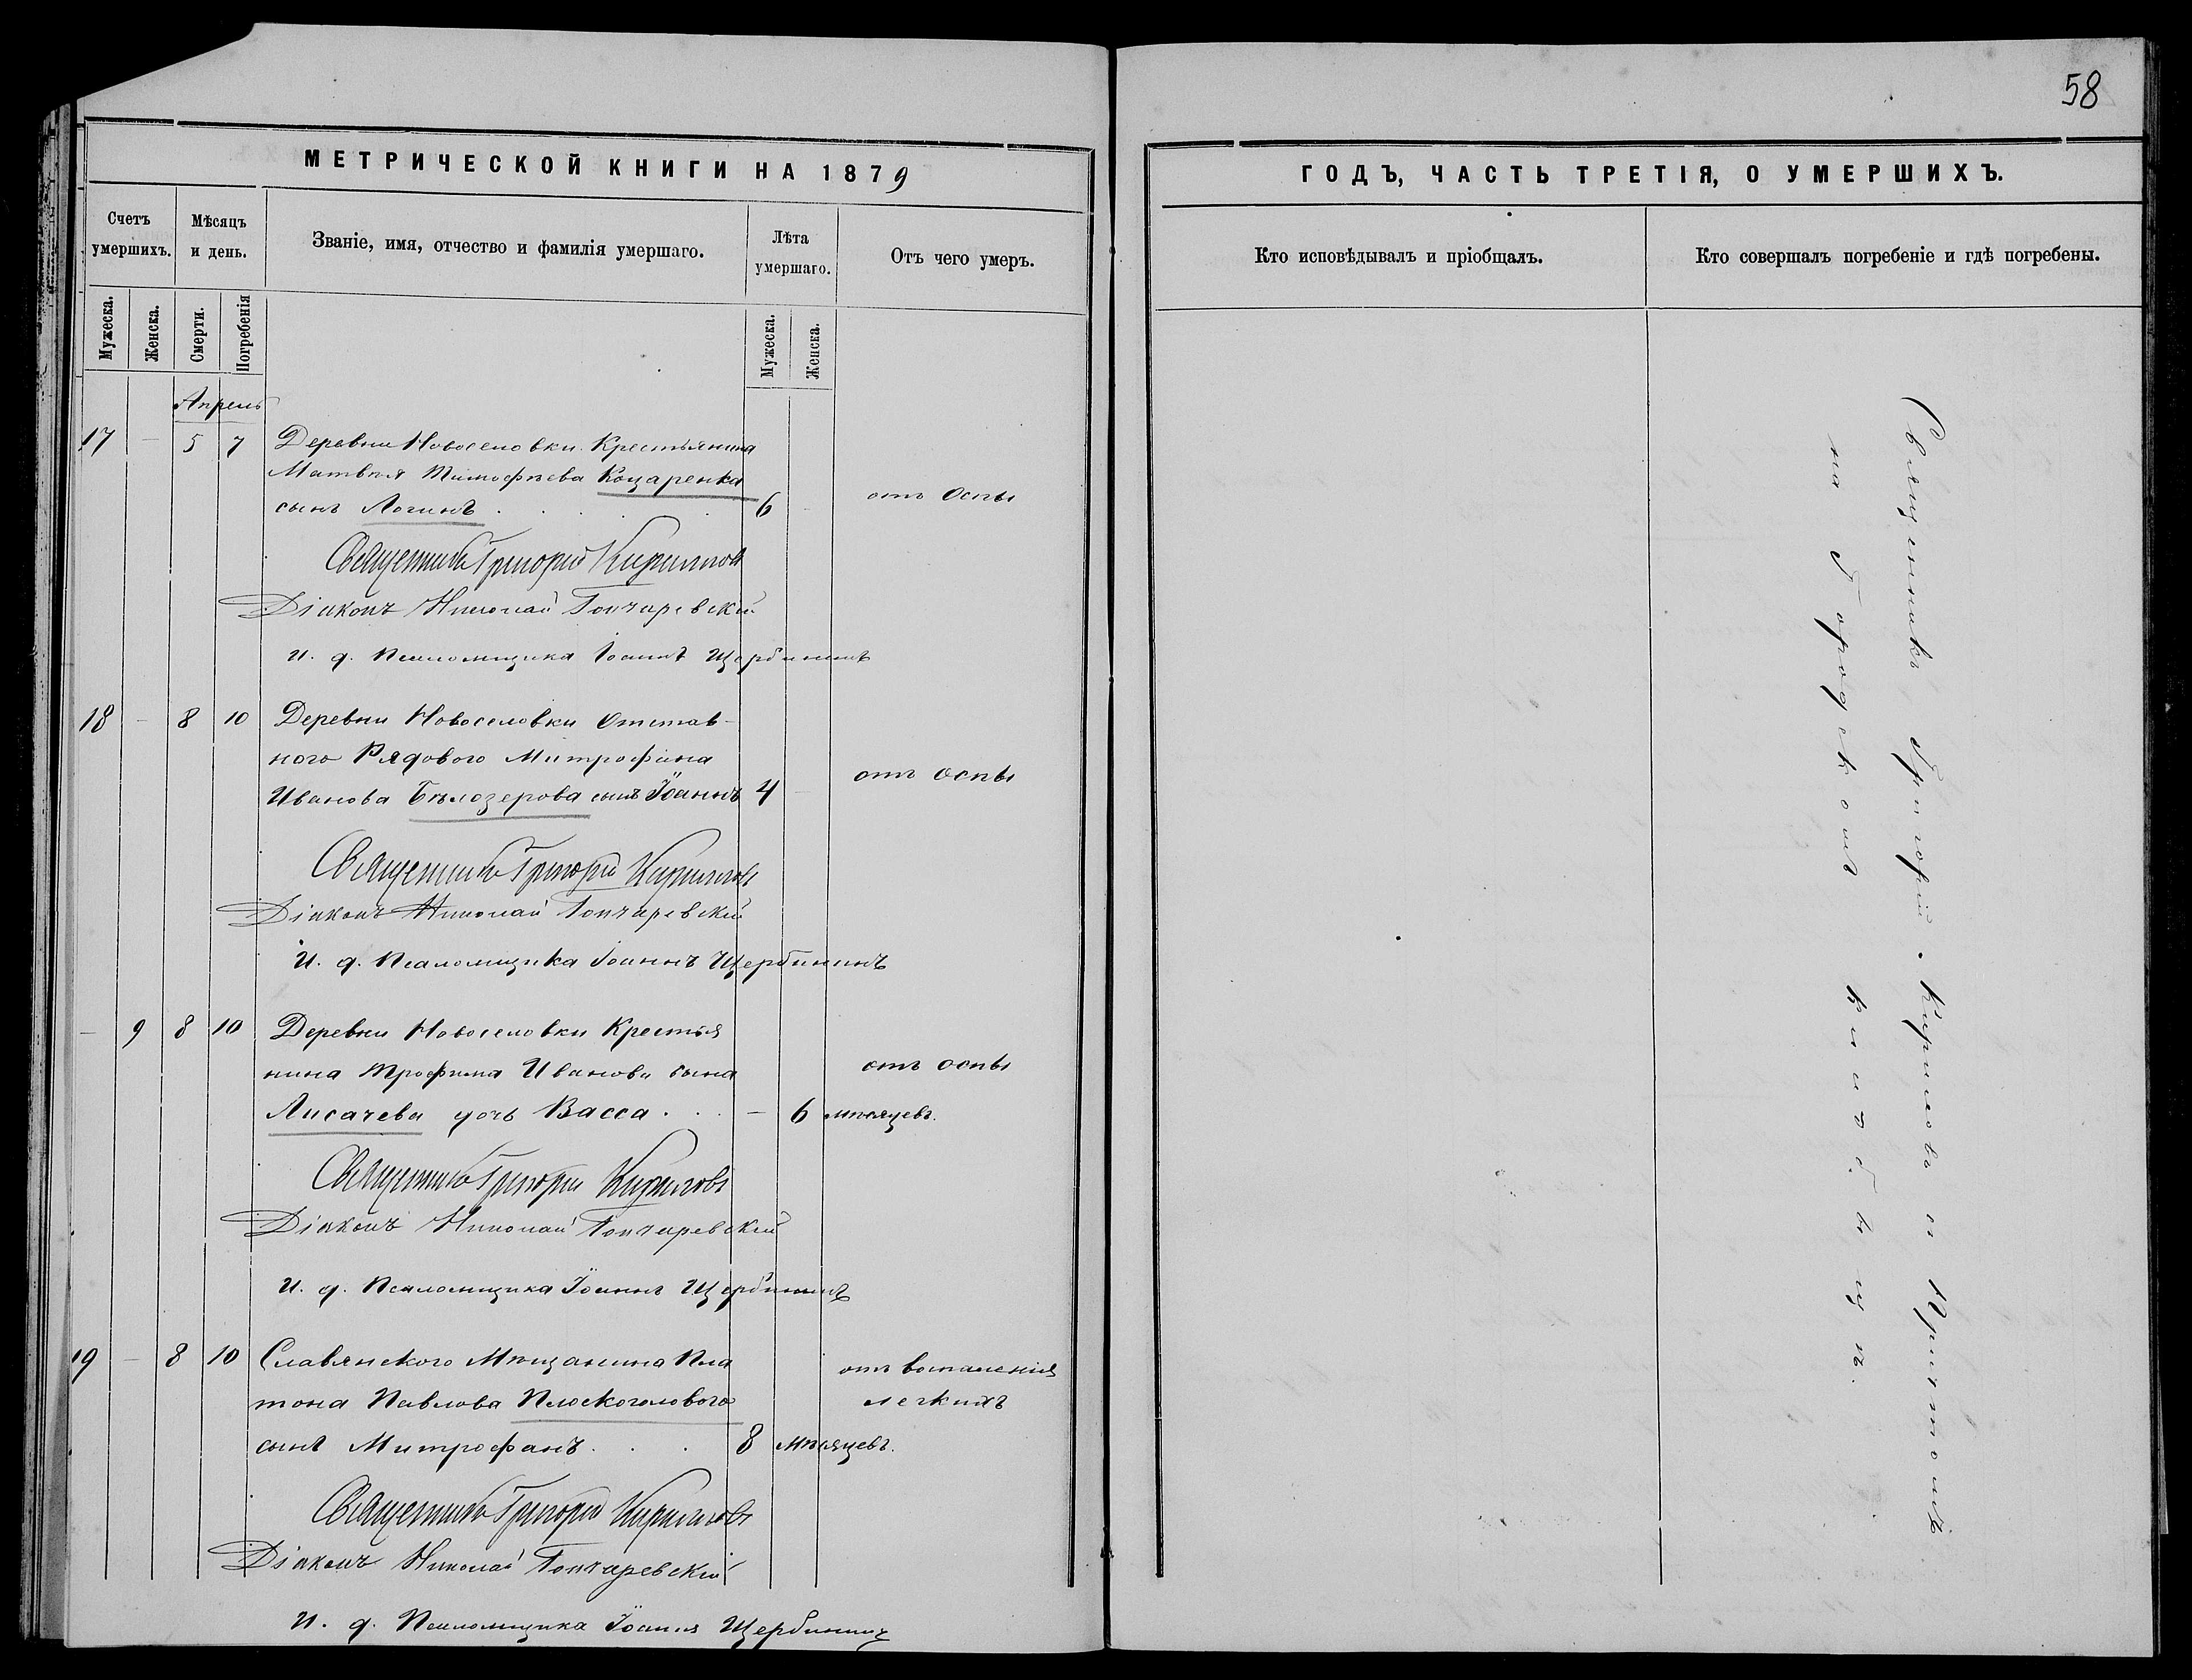 58
МЕТРИЧЕСКОЙ КНИГИ НА 1879
ГОДЪ, ЧАСТЬ ТРЕТІЯ, О УМЕРШИХЪ.
Счетъ умершихъ.
Мѣсяцъ и день.
Званіе, имя, отчество и фамилія умершаго.
Лѣта умершаго.
Отъ чего умеръ.
Кто исповѣдывалъ и пріобщалъ.
Кто совершалъ погребеніе и гдѣ погребены.
Мужеска.
Женска.
Смерти.
Погребенія
Мужеска.
Женска.
Апрель
17 — 5 7 Деревни Новоселовки Крестьянина
Матвѣя Тимофѣева Коцаренка
сынъ Логинъ . . . . 6 — отъ Оспы
Священникъ Григорій Кирилловъ
Діаконъ Николай Гончаревскій
И. д. Псаломщика Іоаннъ Щербининъ
18 — 8 10 Деревни Новоселовки Отстав-
ного Рядового Митрофана
Иванова Бѣлозерова сынъ Іоаннъ 4 — отъ оспы
Священникъ Григорій Кирилловъ
Діаконъ Николай Гончаревскій
И. д. Псаломщика Іоаннъ Щербининъ
— 9 8 10 Деревни Новоселовки Крестья
нина Трофима Иванова сына отъ оспы
Лисачева дочь Васса . . . — 6 мѣсяцевъ.
Священникъ Григорій Кирилловъ
Діаконъ Николай Гончаревскій
И. д. Псаломщика Іоаннъ Щербининъ
19 — 8 10 Славянского Мѣщанина Пла отъ воспаленія
тона Павлова Плоскоголового легкихъ
сынъ Митрофанъ . . . 8 мѣсяцевъ.
Священникъ Григорій Кирилловъ
Діаконъ Николай Гончаревскій
И. д. Псаломщика Іоаннъ Щербининъ
Священникъ Григорій Кириловъ съ Причтомъ
на Городскомъ кладбищѣ.